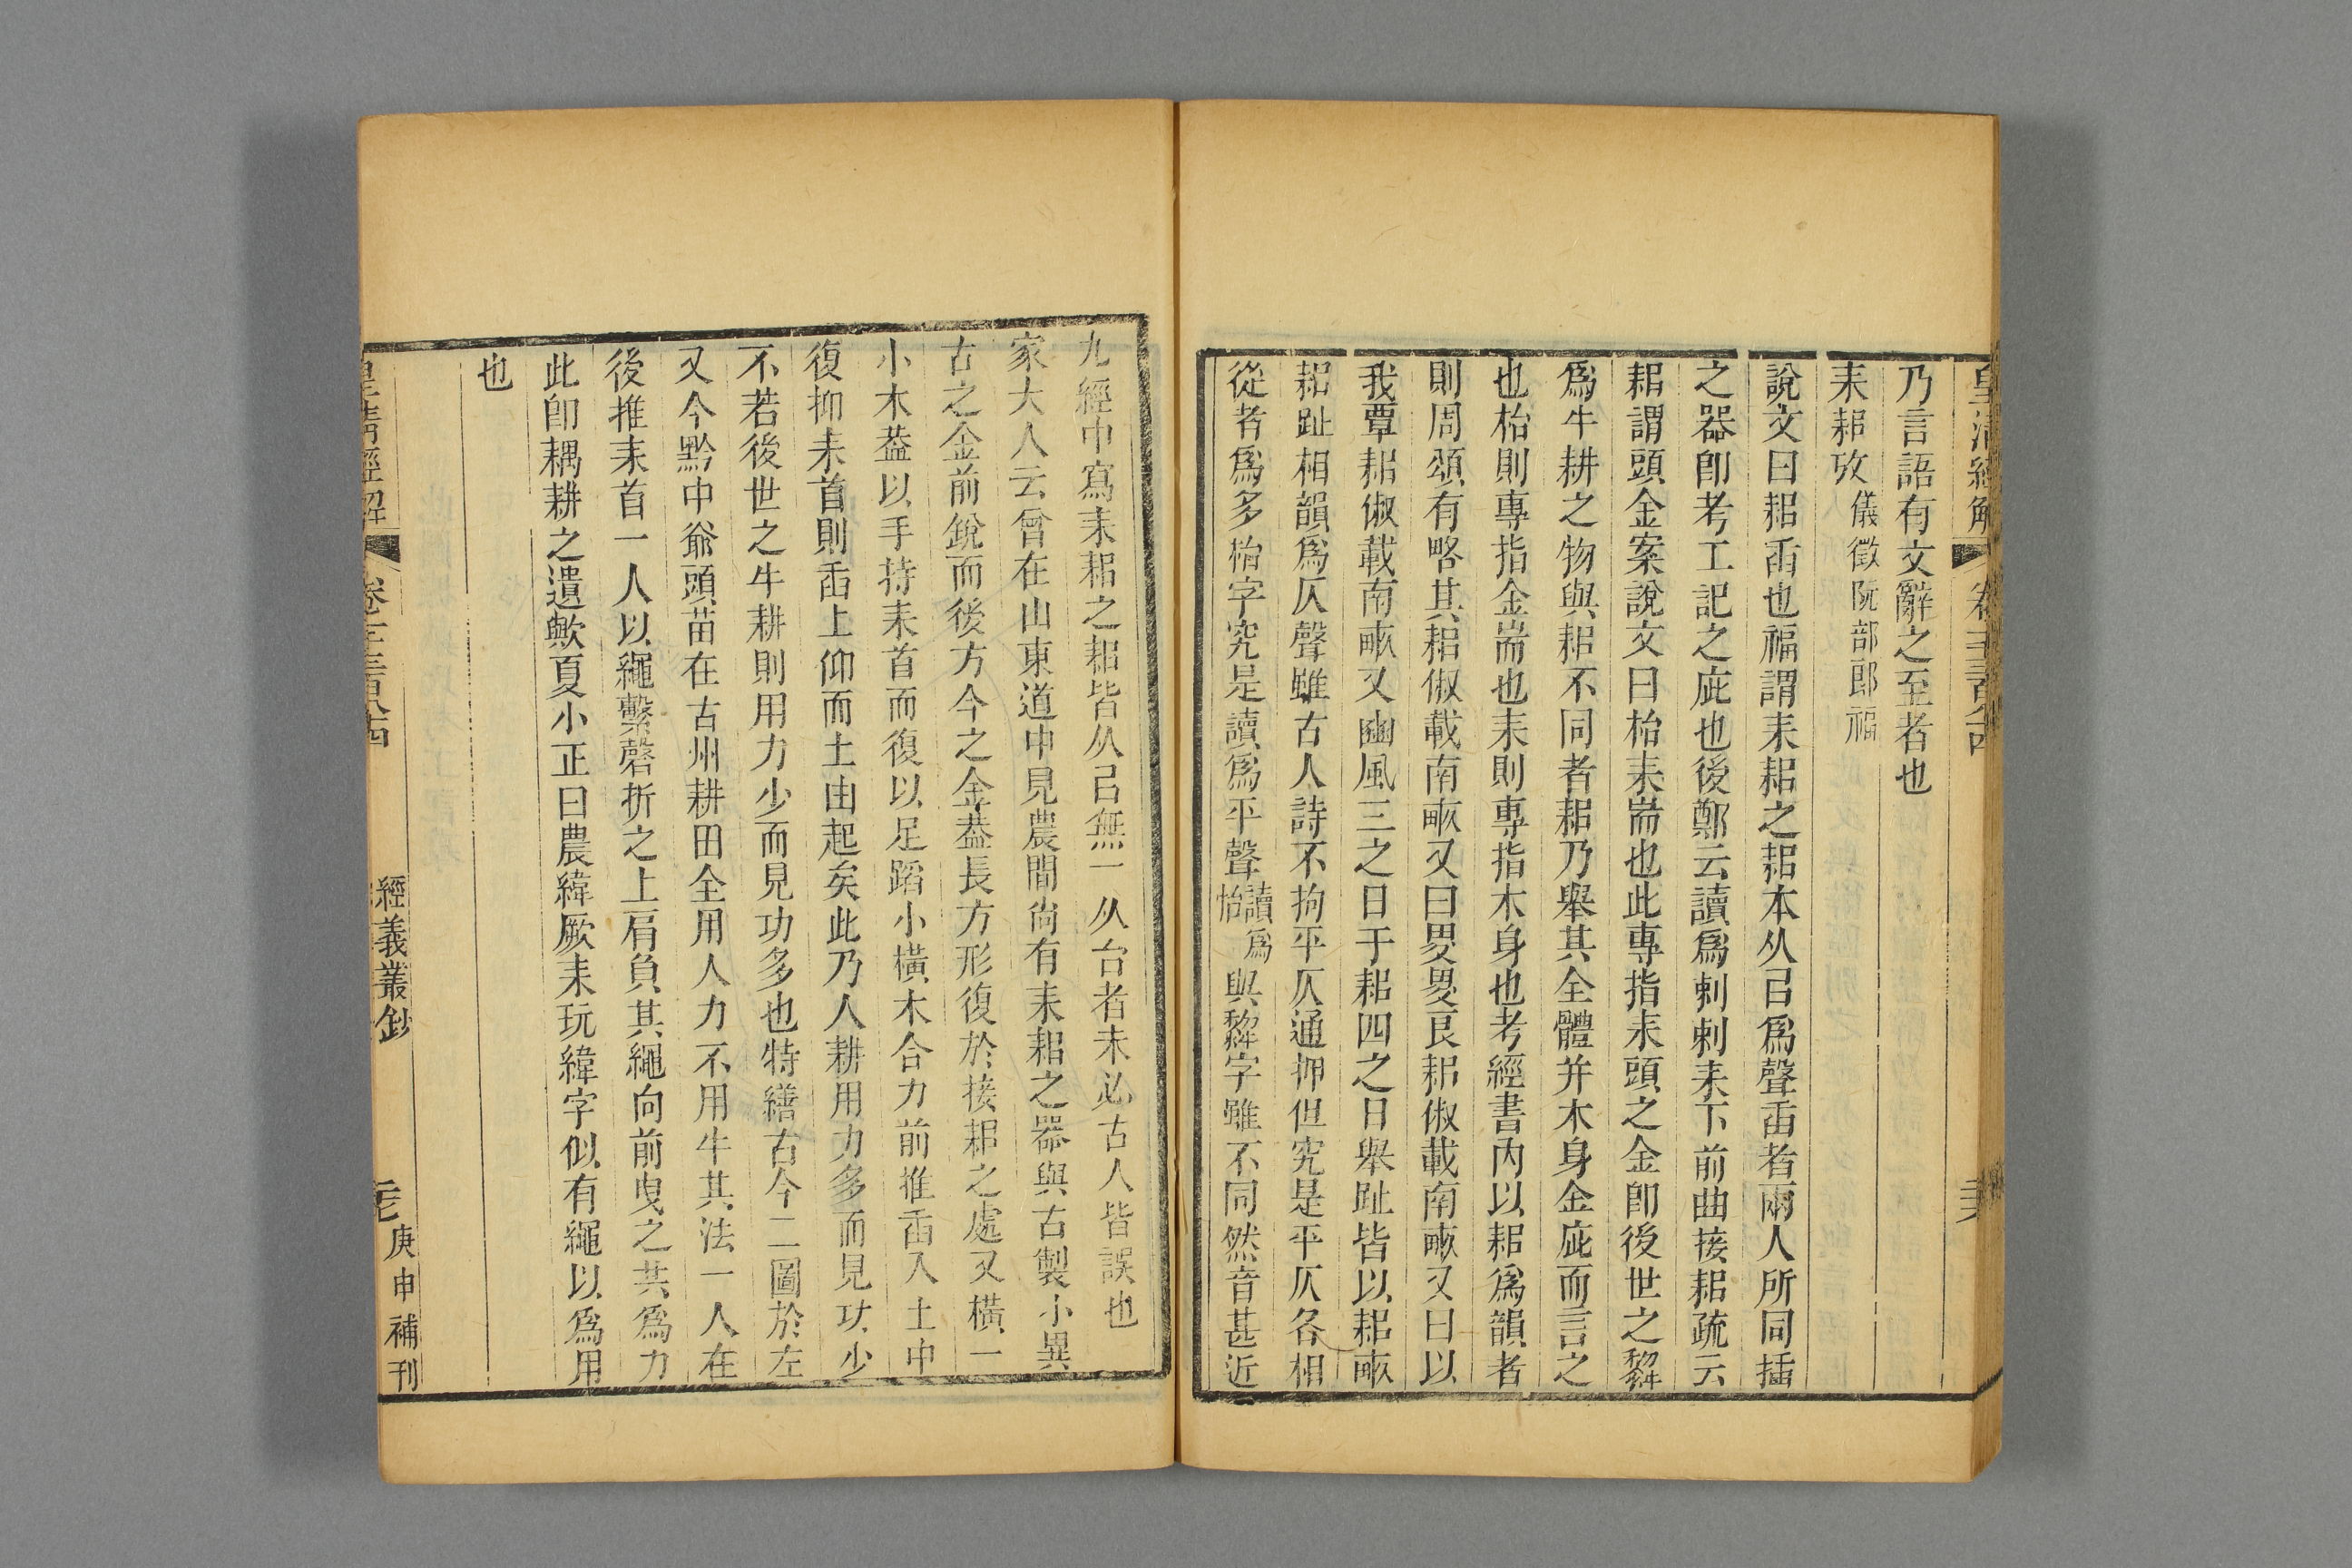 皇清經解
乃言語有文辭之至者也
耒耜攷 儀徵阮部郎福
說文曰耜臿也福謂耒耜之耜本从㠯爲聲臿者兩人所同插
之器卽考工記之庛也後鄭云讀爲剌剌耒下前曲接耜疏云
耜謂頭金案說文曰枱耒耑也此專指耒頭之金卽後世之犂
爲牛耕之物與耜不同者耜乃舉其全體并木身金庛而言之
也枱則專指金耑也耒則專指木身也考經書內以耜爲韻者
則周頌有略其耜俶載南畞又曰畟畟良耜俶載南畞又曰以
我覃耜俶載南畞又豳風三之日于耜四之日舉趾皆以耜畞
耜趾相韻爲仄聲雖古人詩不拘平仄通押但究是平仄各相
從者爲多枱字究是讀爲平聲讀爲怡與犂字雖不同然音甚近
九經中寫耒耜之耜皆从㠯無一从台者未必古人皆誤也
家大人云曾在山東道中見農間尚有耒耜之器與古製小異
古之金前銳而後方今之金葢長方形復於接耜之處又橫一
小木葢以手持耒首而復以足蹈小橫木合力前推臿入土中
復抑耒首則臿上仰而土由起矣此乃人耕用力多而見功少
不若後世之牛耕則用力少而見功多也特繕古今二圖於左
又今黔中爺頭苗在古州耕田全用人力不用牛其法一人在
後推耒首一人以繩繫磬折之上肩負其繩向前曳之共爲力
此卽耦耕之遺歟夏小正曰農緯厥耒玩緯字似有繩以爲用
也
皇清經解
經義叢鈔
庚申補刊